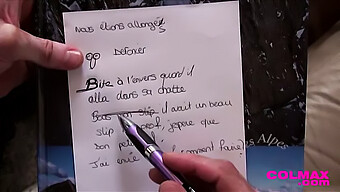 Nous étions allongés
Détoner
Bite à l'envers quand il
alla dans sa chatte
Pas un slip il avait un beau
slip que
Don
J'ai envie comment faire
Alpes
COLMAX
.com